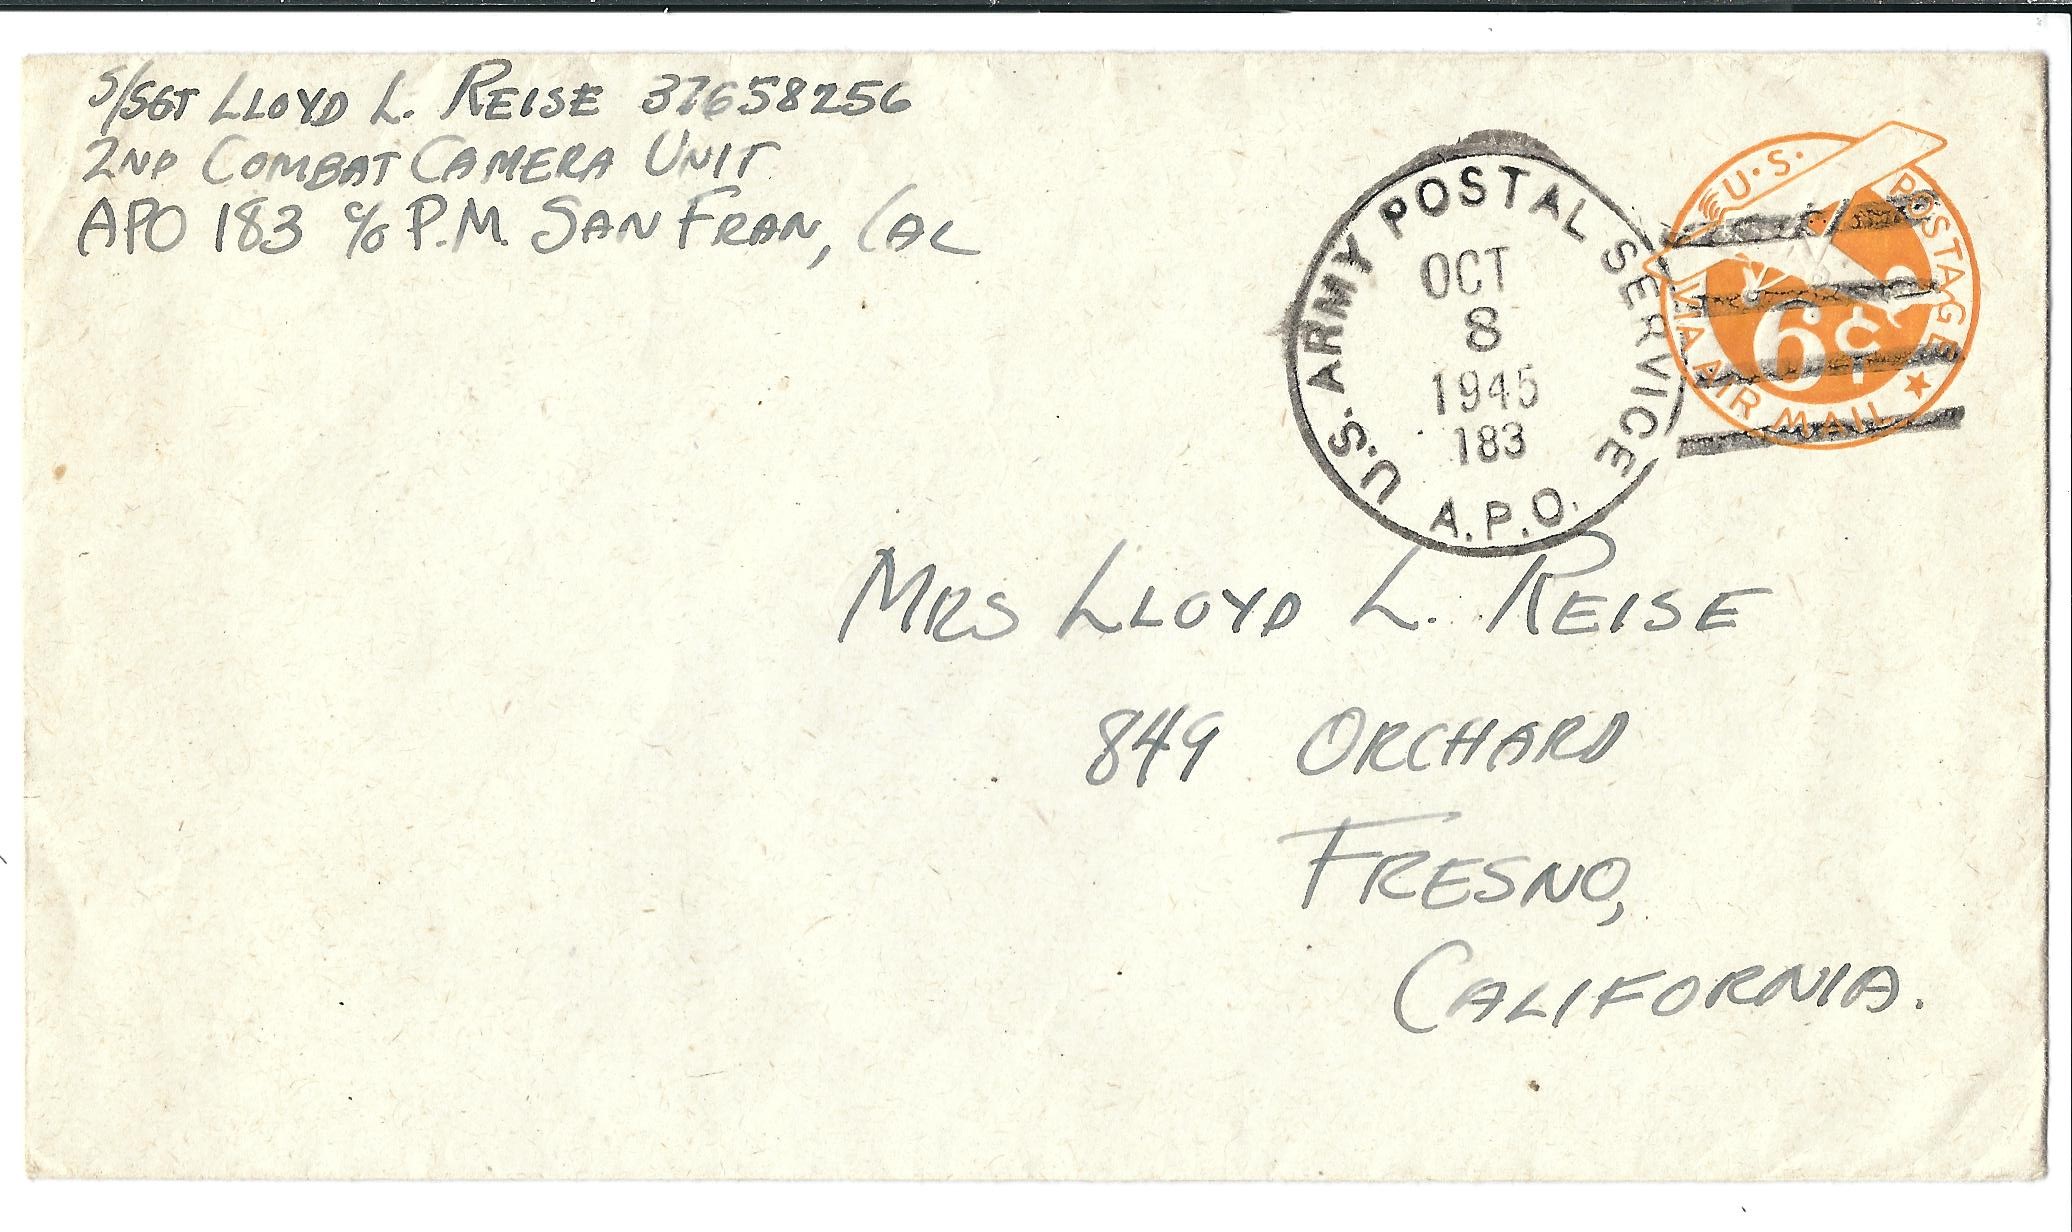 S/SGT LLOYD L. REISE 37658256
2ND COMBAT CAMERA UNIT
APO 183 c/o P.M. SAN FRAN, CAL
U.S. ARMY POSTAL SERVICE
OCT
8
1945
183
A.P.O.
U.S. POSTAGE
6¢
VIA AIR MAIL
MRS LLOYD L. REISE
849 ORCHARD
FRESNO,
CALIFORNIA.